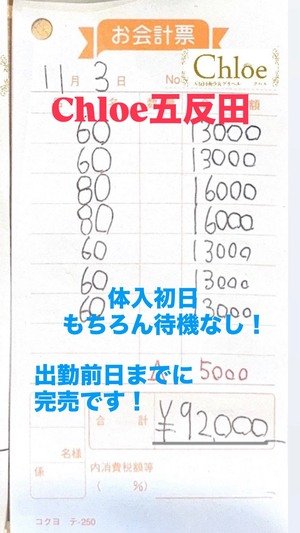 お会計票
11月3日 No
Chloe
Chloe五反田
額
60 13000
60 13000
80 16000
80 16000
60 13000
60 13000
60 3000
体入初日
もちろん待機なし！
5000
出勤前日までに
完売です！
合計 ¥92,000
名様
係
内消費税額等
( %)
コクヨ テ-250